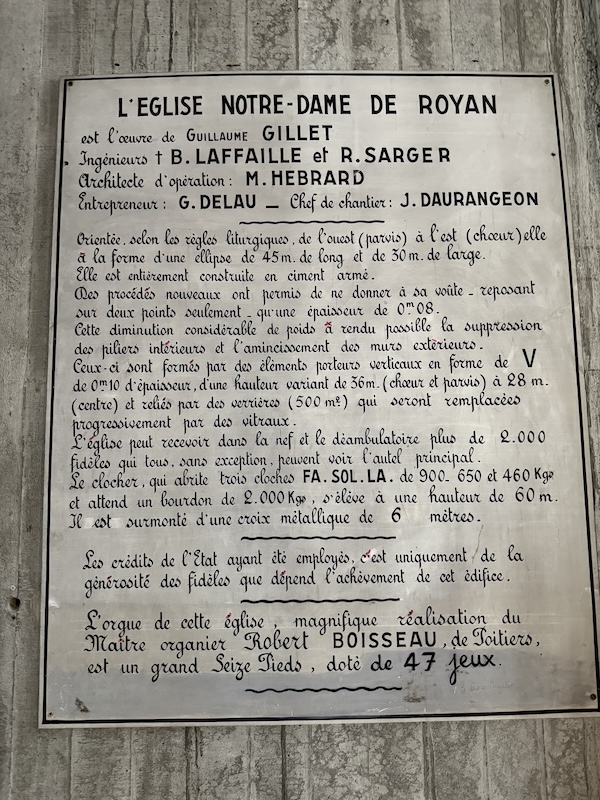 L'EGLISE NOTRE-DAME DE ROYAN
est l'œuvre de GUILLAUME GILLET
Ingénieurs † B. LAFFAILLE et R. SARGER
Architecte d'opération : M. HEBRARD
Entrepreneur : G. DELAU _ Chef de chantier : J. DAURANGEON
Orientée, selon les règles liturgiques, de l'ouest (parvis) à l'est (chœur) elle
a la forme d'une ellipse de 45 m. de long et de 30 m. de large.
Elle est entièrement construite en ciment armé.
Des procédés nouveaux ont permis de ne donner à sa voûte _ reposant
sur deux points seulement _ qu'une épaisseur de 0m08.
Cette diminution considérable de poids à rendu possible la suppression
des piliers intérieurs et l'amincissement des murs extérieurs.
Ceux-ci sont formés par des éléments porteurs verticaux en forme de V
de 0m10 d'épaisseur, d'une hauteur variant de 36m. (chœur et parvis) à 28 m.
(centre) et reliés par des verrières (500 m2) qui seront remplacées
progressivement par des vitraux.
L'église peut recevoir dans la nef et le déambulatoire plus de 2.000
fidèles qui tous, sans exception, peuvent voir l'autel principal.
Le clocher, qui abrite trois cloches FA. SOL. LA. de 900_ 650 et 460 Kgs
et attend un bourdon de 2.000 Kgs, s'élève à une hauteur de 60 m.
Il est surmonté d'une croix métallique de 6 mètres.
Les crédits de l'Etat ayant été employés, c'est uniquement de la
générosité des fidèles que dépend l'achèvement de cet édifice.
L'orgue de cette église, magnifique réalisation du
Maître organier Robert BOISSEAU, de Poitiers,
est un grand Seize Pieds, doté de 47 jeux.